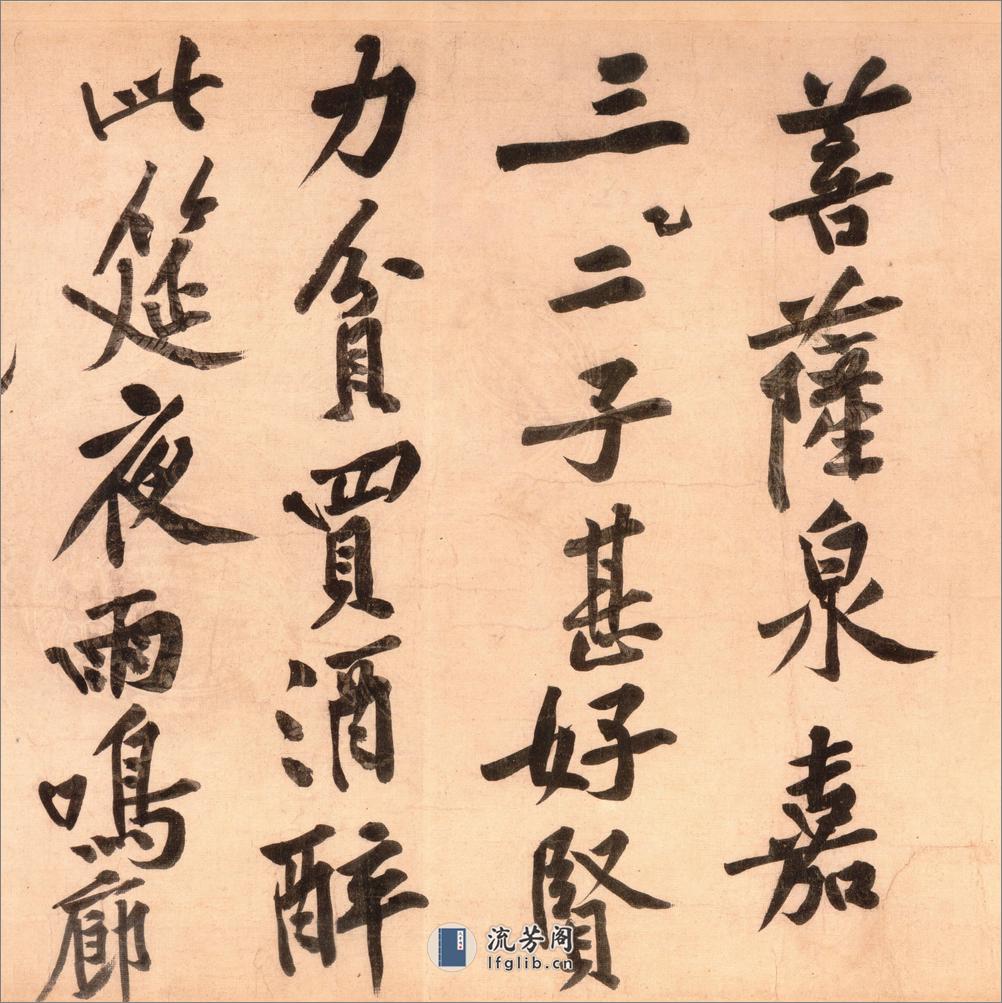 菩薩泉嘉
三二子甚好賢
力貧買酒醉
此筵夜雨鳴廊
流芳阁
lfglib.cn